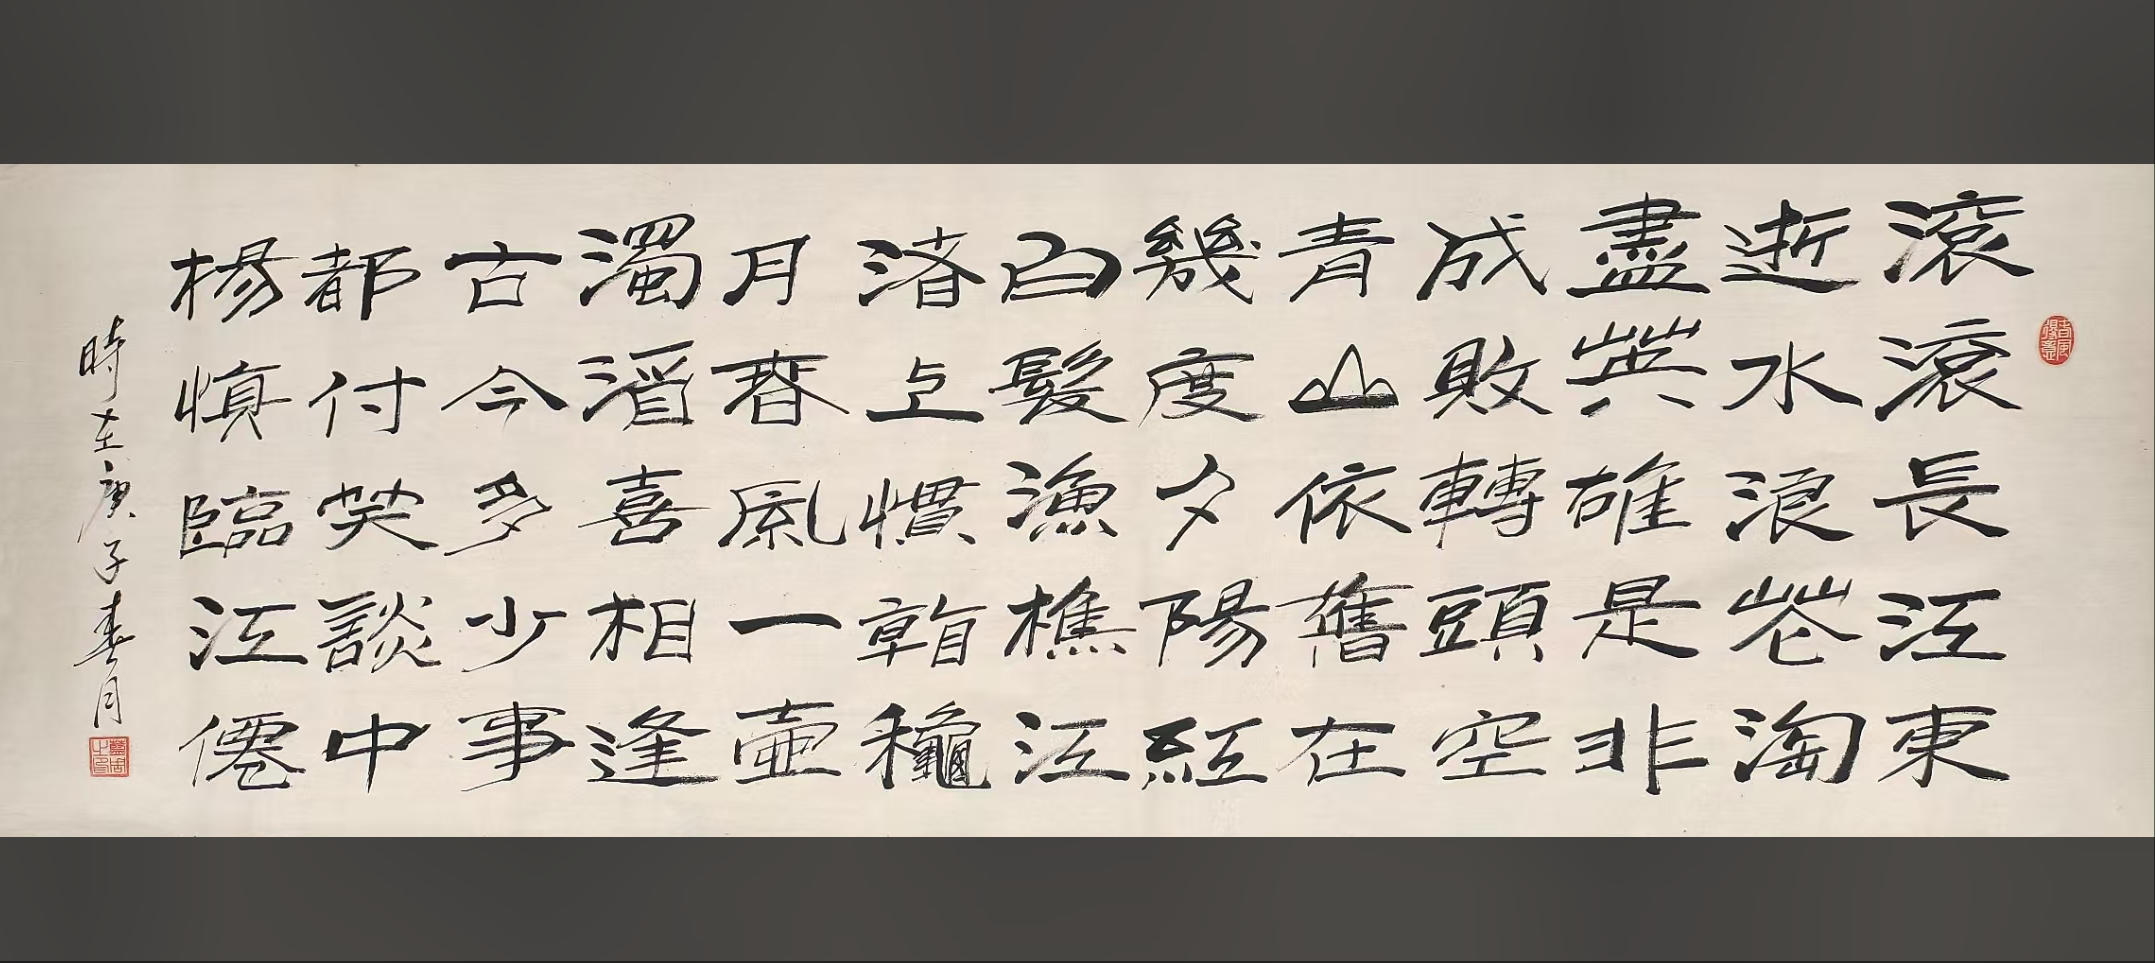 滾滾長江東
逝水浪花淘
盡英雄是非
成敗轉頭空
青山依舊在
幾度夕陽紅
白髮漁樵江
渚上慣看龝
月春風一壺
濁酒喜相逢
古今多少事
都付笑談中
楊慎臨江僊
時在庚子春月